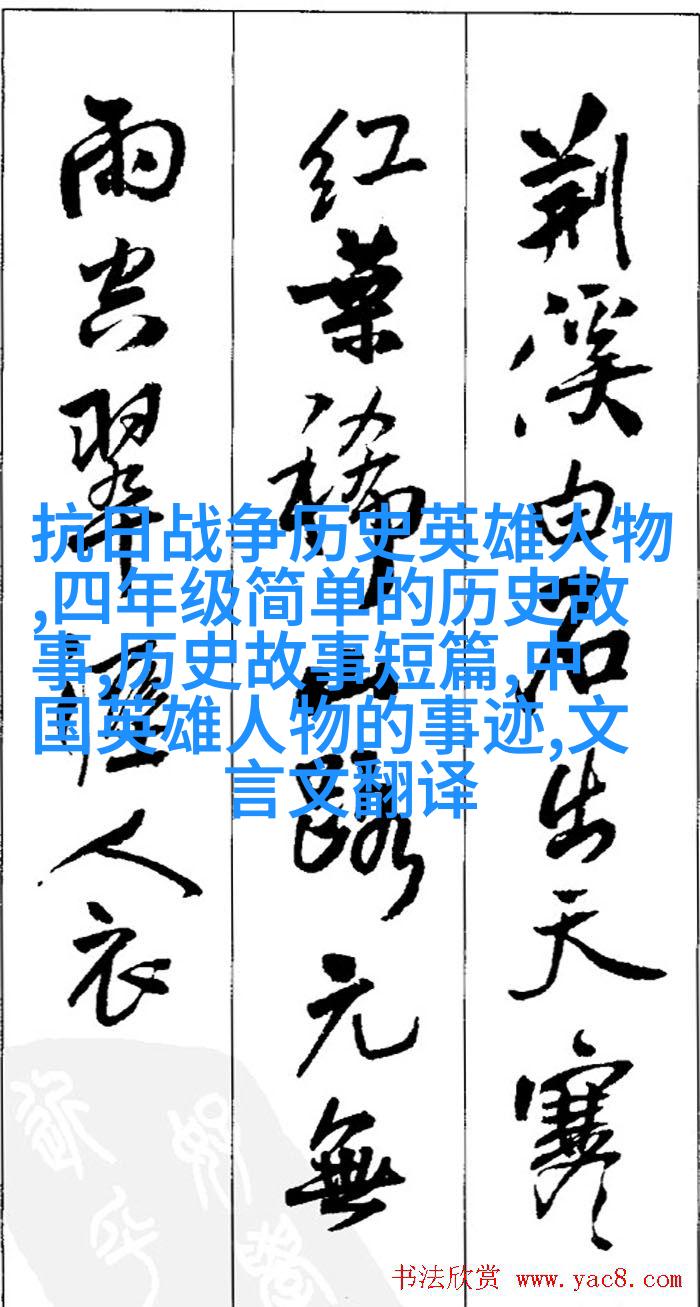 荆溪白石出天寒
红葉稀山路元無
雨空翠濕人衣
抗日战争历史英雄人物
,四年级简单的历史故
事,历史故事短篇,中
国英雄人物的事迹,文
言文翻译
书法欣赏 www.yac8.com